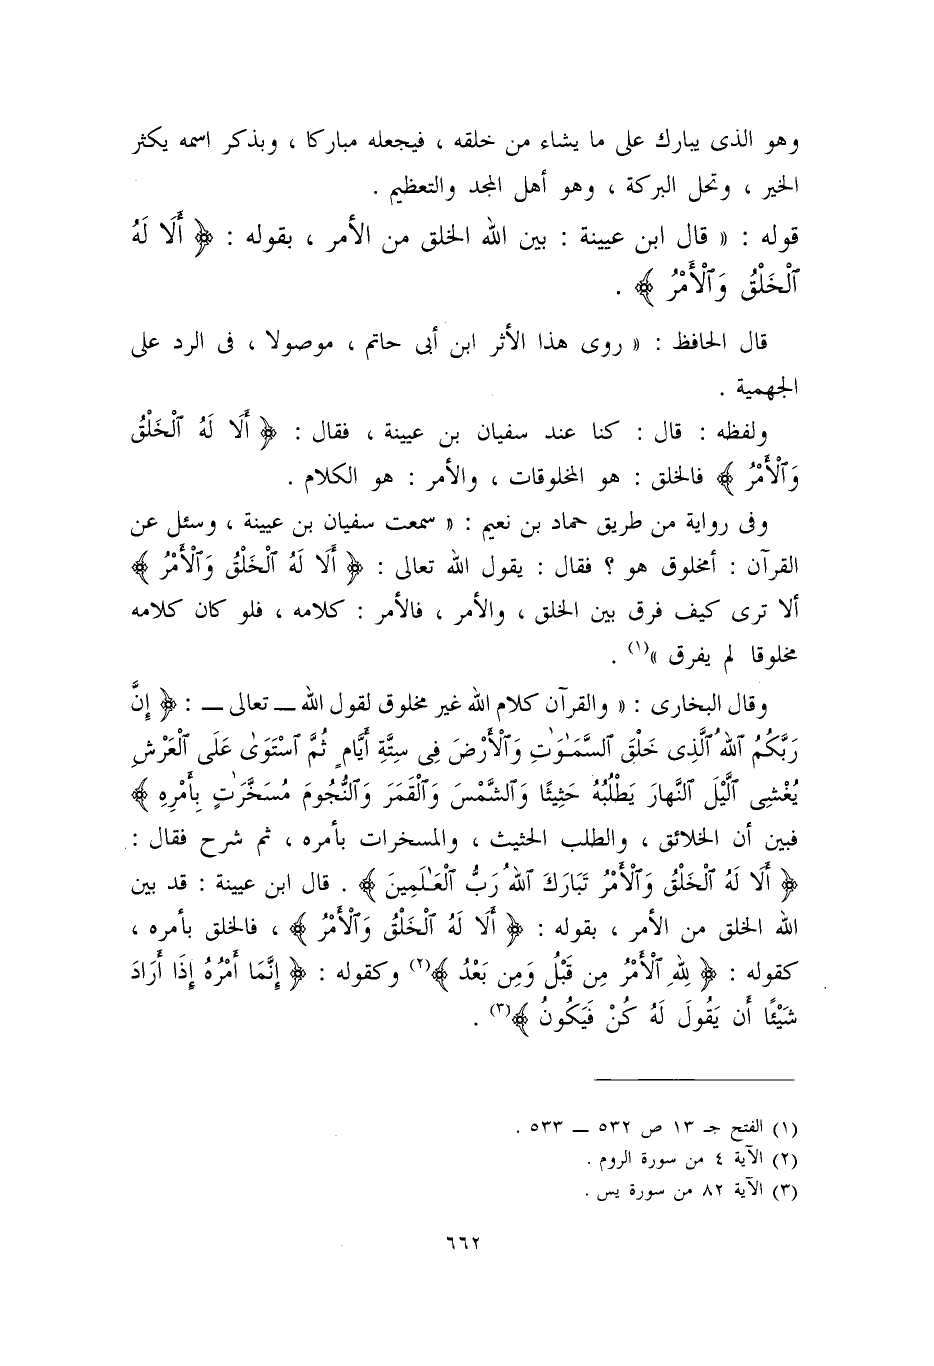 وهو الذى يبارك على ما يشاء من خلقه ، فيجعله مباركا ، وبذكر اسمه يكثر
الخير ، وتحل البركة ، وهو أهل المجد والتعظيم .
قوله : « قال ابن عيينة : بين الله الخلق من الأمر ، بقوله : ﴿ أَلَا لَهُ
ٱلْخَلْقُ وَٱلْأَمْرُ ﴾ .
قال الحافظ : « روى هذا الأثر ابن أبى حاتم ، موصولا ، فى الرد على
الجهمية .
ولفظه : قال : كنا عند سفيان بن عيينة ، فقال : ﴿ أَلَا لَهُ ٱلْخَلْقُ
وَٱلْأَمْرُ ﴾ فالخلق : هو المخلوقات ، والأمر : هو الكلام .
وفى رواية من طريق حماد بن نعيم : « سمعت سفيان بن عيينة ، وسئل عن
القرآن : أمخلوق هو ؟ فقال : يقول الله تعالى : ﴿ أَلَا لَهُ ٱلْخَلْقُ وَٱلْأَمْرُ ﴾
ألا ترى كيف فرق بين الخلق ، والأمر ، فالأمر : كلامه ، فلو كان كلامه
مخلوقا لم يفرق »(١) .
وقال البخارى : « والقرآن كلام الله غير مخلوق لقول الله ــ تعالى ــ : ﴿ إِنَّ
رَبَّكُمُ ٱللهُ ٱلَّذِى خَلَقَ ٱلسَّمَـٰوَٰتِ وَٱلْأَرْضَ فِى سِتَّةِ أَيَّامٍ ثُمَّ ٱسْتَوَىٰ عَلَى ٱلْعَرْشِ
يُغْشِى ٱلَّيْلَ ٱلنَّهارَ يَطْلُبُهُ حَثِيثًا وَٱلشَّمْسَ وَٱلْقَمَرَ وَٱلنُّجُومَ مُسَخَّرَٰتٍ بِأَمْرِهِ ﴾
فبين أن الخلائق ، والطلب الحثيث ، والمسخرات بأمره ، ثم شرح فقال :
﴿ أَلَا لَهُ ٱلْخَلْقُ وَٱلْأَمْرُ تَبَارَكَ ٱللهُ رَبُّ ٱلْعَـٰلَمِينَ ﴾ . قال ابن عيينة : قد بين
الله الخلق من الأمر ، بقوله : ﴿ أَلَا لَهُ ٱلْخَلْقُ وَٱلْأَمْرُ ﴾ ، فالخلق بأمره ،
كقوله : ﴿ لِلهِ ٱلْأَمْرُ مِن قَبْلُ وَمِن بَعْدُ ﴾(٢) وكقوله : ﴿ إِنَّمَا أَمْرُهُ إِذَا أَرَادَ
شَيْئًا أَن يَقُولَ لَهُ كُنْ فَيَكُونُ ﴾(٣) .
(١) الفتح جـ ١٣ ص ٥٣٢ ــ ٥٣٣ .
(٢) الآية ٤ من سورة الروم .
(٣) الآية ٨٢ من سورة يس .
٦٦٢